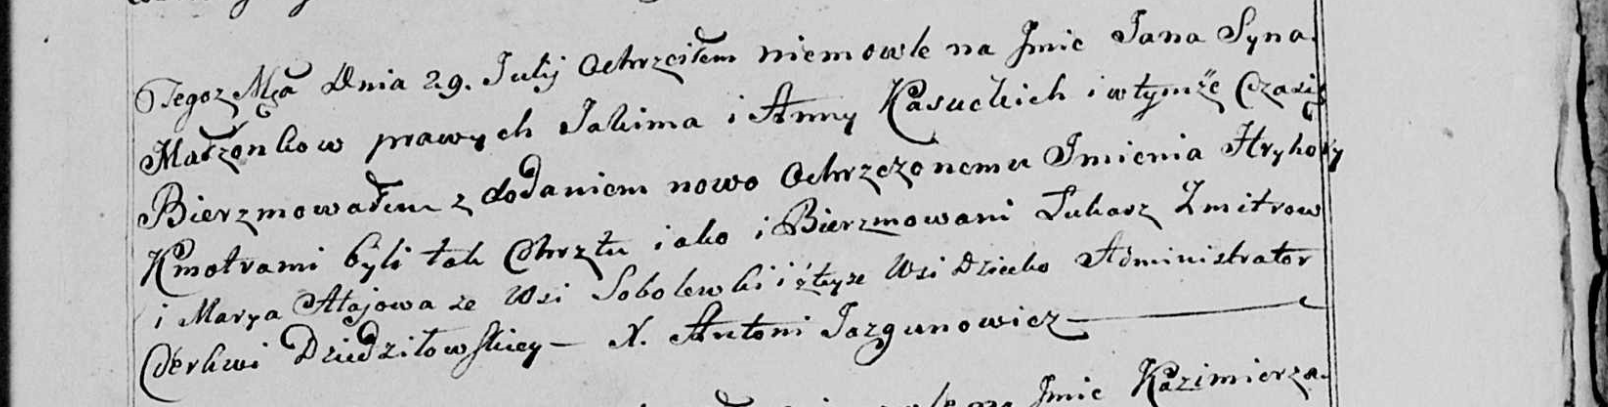 Tegoż Mca Dnia 29. Julij ochrzciłem niemowle na Jmie Jana Syna
Małżonkow prawych Jakima i Anny Kasuckich i w tymże Czasie
Bierzmowałem z dodaniem nowo ochrzczonemu Jmienia Hryhory
Kmotrami byli tak Chrztu iako i Bierzmowani Łukasz Zmitrow
i Marya Ałajowa ze Wsi Sobolewki i z teyze Wsi Dziecko Administrator
Cerkwi Dziedziłowskiey — X. Antoni Jazgunowicz —
na Jmie Kazimierza